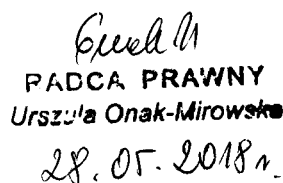 RADCA PRAWNY
Urszula Onak-Mirowska
28.05.2018 r.